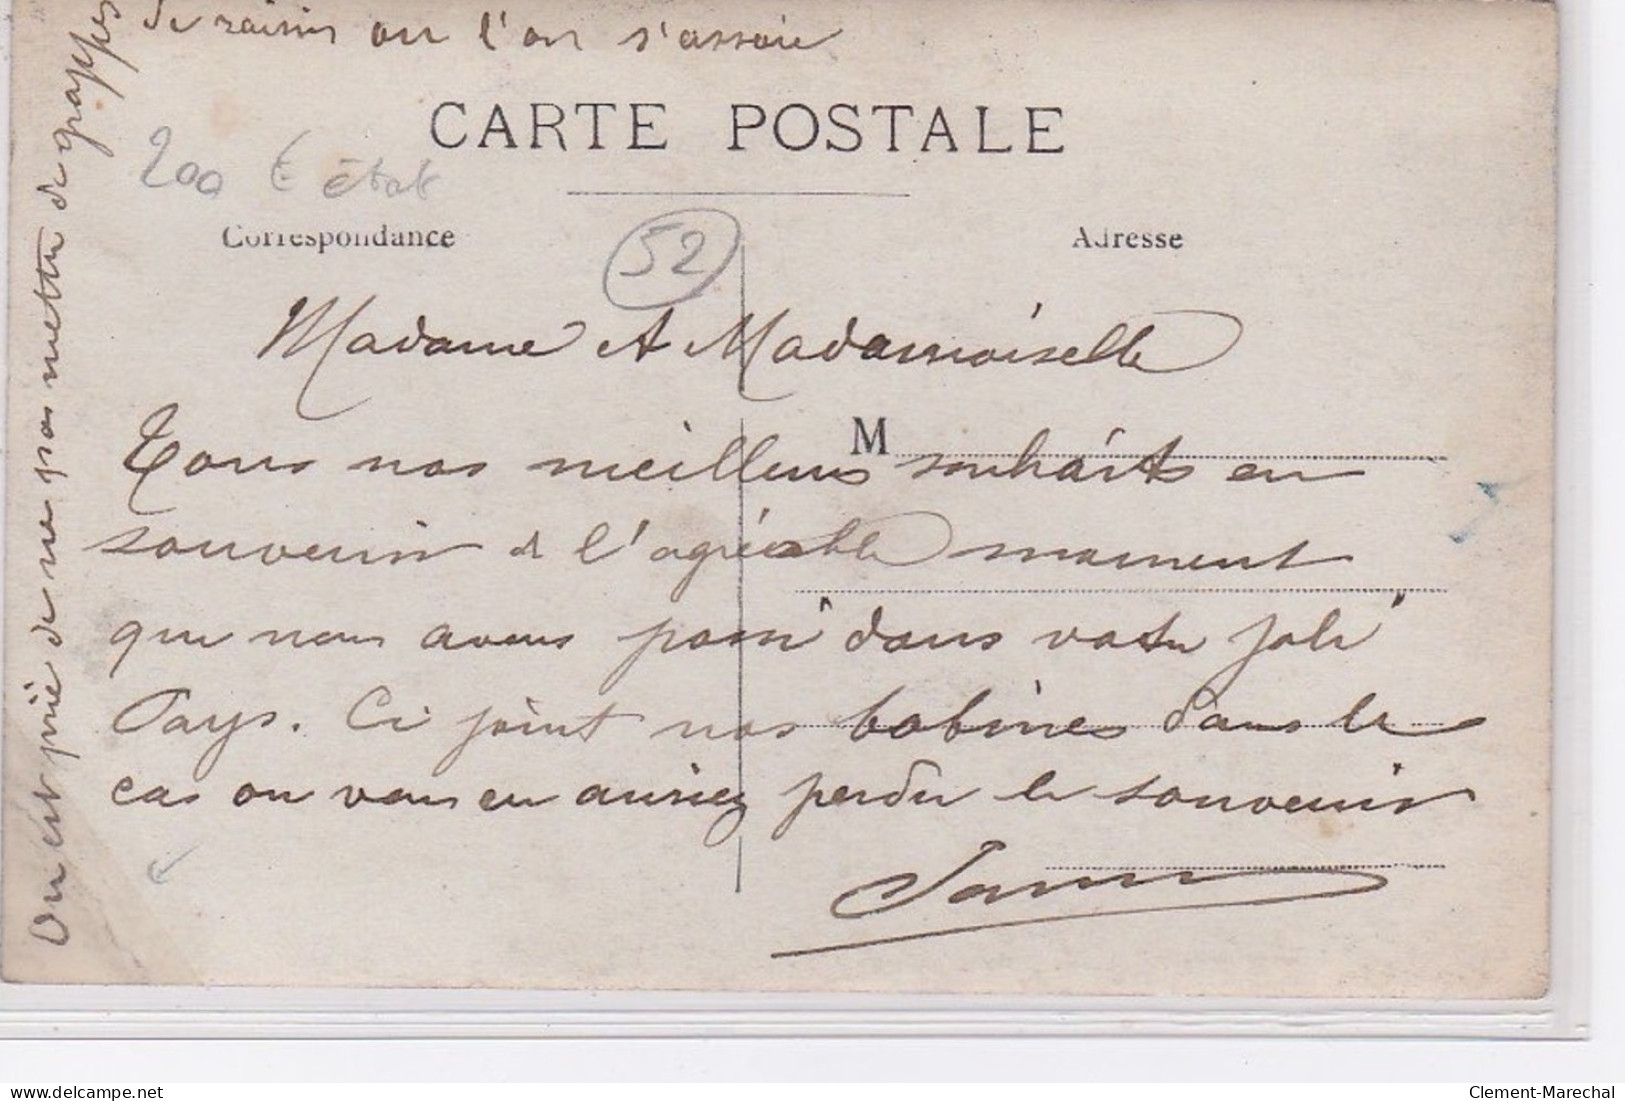 de raisin ou l'on s'assoie
CARTE POSTALE
200 € état
Correspondance
52
Adresse
Madame et Mademoiselle
M
Tous nos meilleurs souhaits en
souvenir de l'agréable moment
que nous avons passé "dans votre joli"
Pays. Ci joint nos bobines dans le
cas ou vous en auriez perdu le souvenir
On est prié de ne pas mettre de grappes
delcampe.net
Clement-Marechal